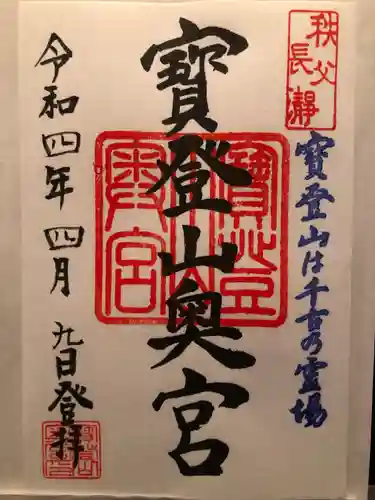 秩父
長瀞
寶登山は千古の霊場
寶登山奥宮
寶登山
奥宮
令和四年四月九日登拝